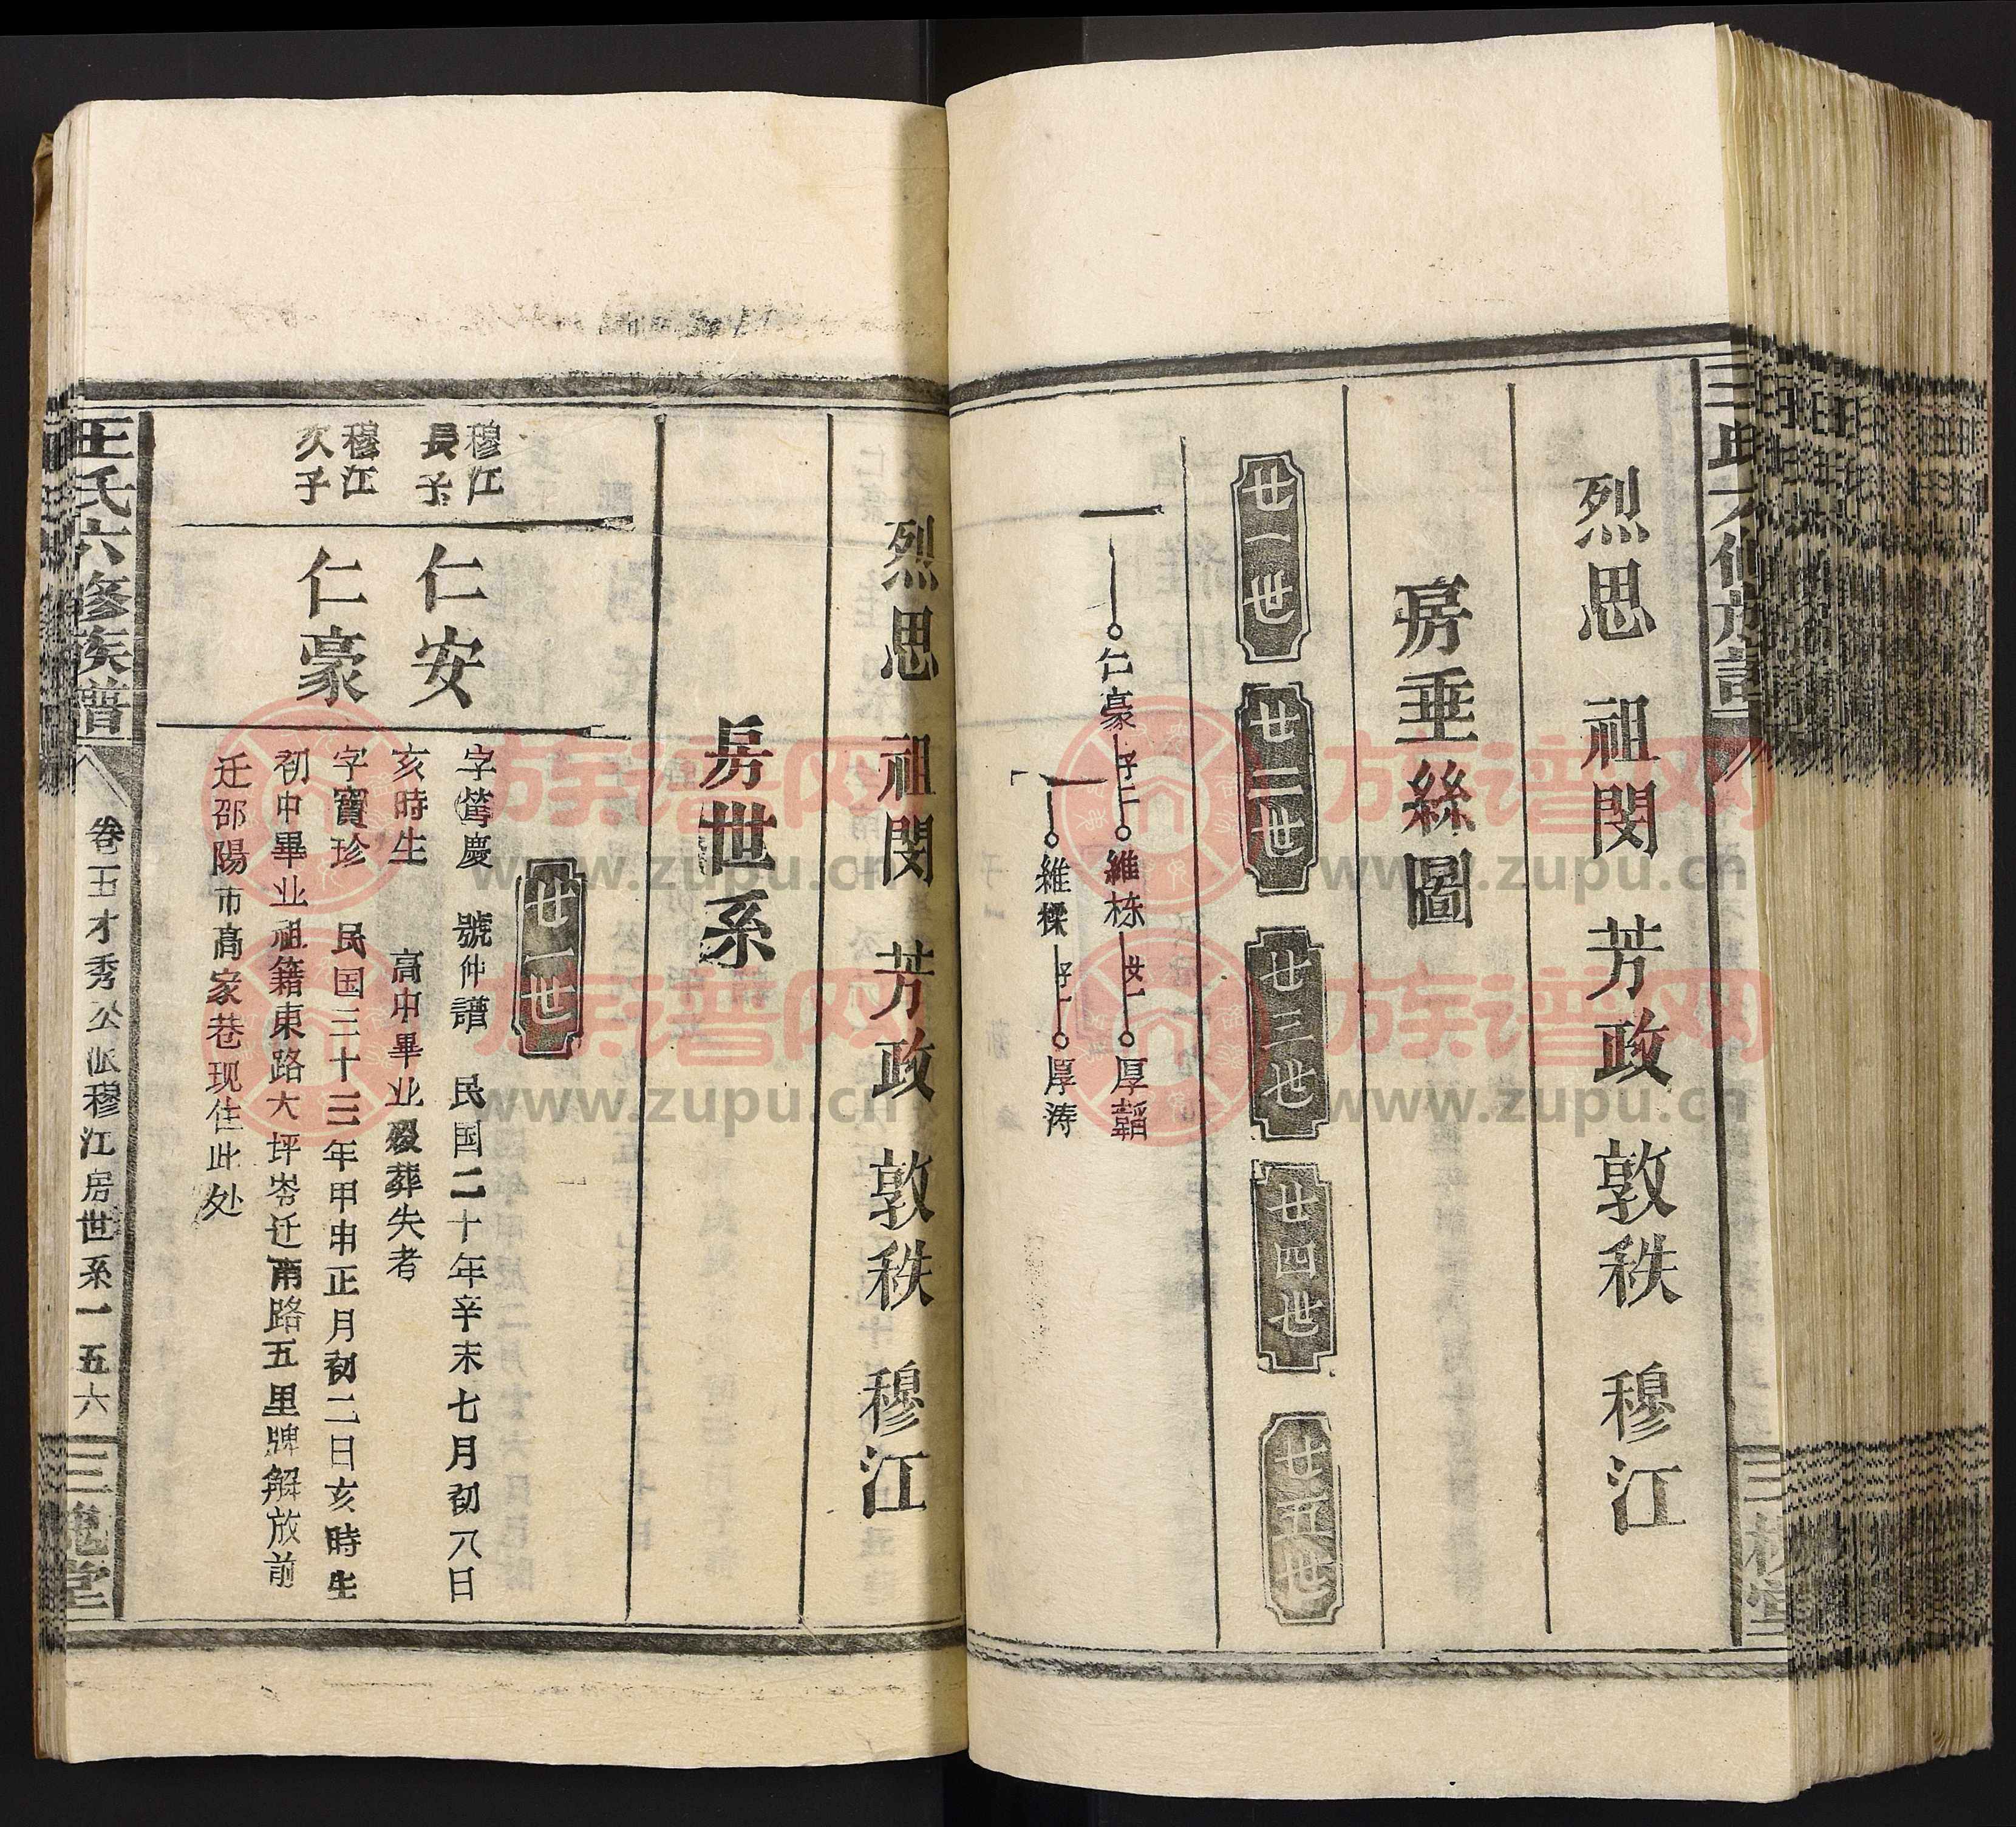 王氏六修族譜
三槐堂
烈思 祖閔 芳政 敦秩 穆江
房垂絲圖
廿一世
廿二世
廿三世
廿四世
廿五世
仁豪 子二 維栋 女一 厚韜
維樑 子一 厚涛
烈思 祖閔 芳政 敦秩 穆江
房世系
廿一世
穆江
長子
仁安
字篤慶 號仲譜 民国二十年辛未七月初八日
亥時生 高中畢业殁葬失者
穆江
次子
仁豪
字寶珍 民国三十三年甲申正月初二日亥時生
初中畢业祖籍東路大坪岺迁南路五里牌解放前
迁邵陽市高家巷现住此处
王氏六修族譜
卷二五才秀公派穆江房世系一五六
三槐堂
族谱网
www.zupu.cn
族谱网
www.zupu.cn
族谱网
www.zupu.cn
族谱网
www.zupu.cn